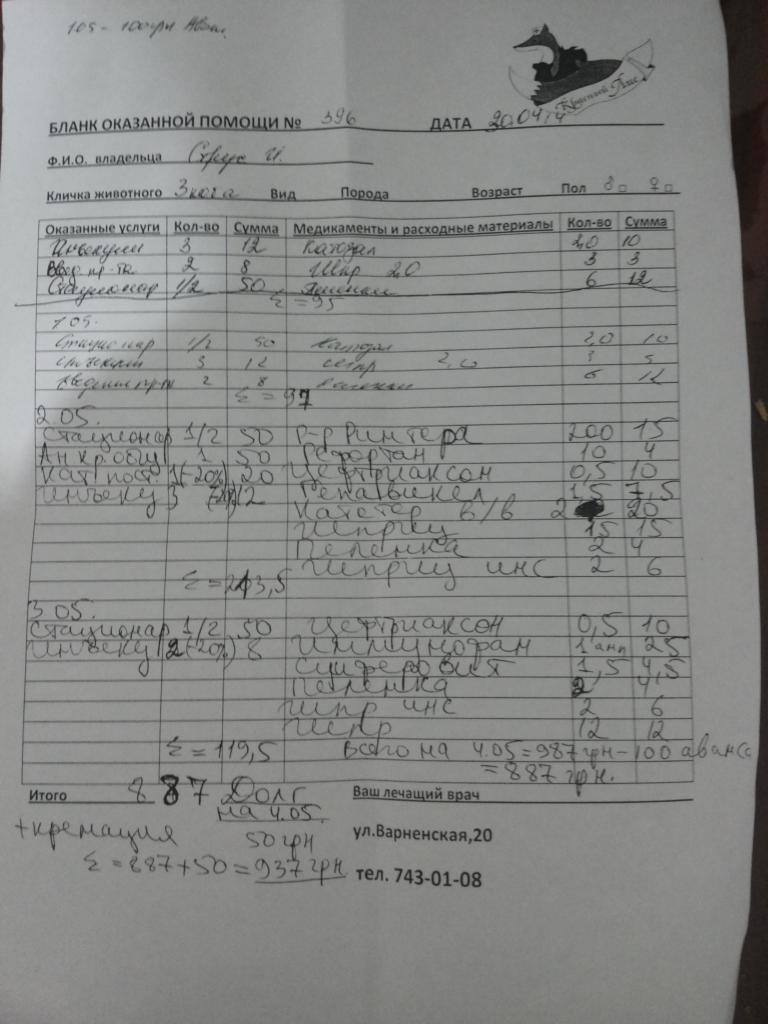 1 05 - 100грн Аванс
Красный Лис
БЛАНК ОКАЗАННОЙ ПОМОЩИ № 396 ДАТА 30.04.14
Ф.И.О. владельца
Кличка животного 3 кота Вид Порода Возраст Пол ♂ □ ♀ □
Оказанные услуги Кол-во Сумма Медикаменты и расходные материалы Кол-во Сумма
Инъекции 3 12 Катозал 2,0 10
Введ пр-та 2 8 Шпр 2,0 3 3
Стационар 1/2 50 6 12
Σ = 95
1 05.
Стационар 1/2 50 Катозал 2,0 10
инъекции 3 12 2,0 3
Введение пр-та 2 8 6 12
Σ = 97
2 05.
Стационар 1/2 50 Р-р Рингера 200 15
Ан кр. общ 1 50 Рефортан 10 4
Кат пост. 1 (-20%) 20 Цефтриаксон 0,5 10
Инъекц 3 (-20%) 12 Гепавикел 1,5 7,5
Катетер в/в 2 20
Шприц 15 15
Пеленка 2 4
Шприц инс 2 6
Σ = 213,5
3 05.
Стационар 1/2 50 Цефтриаксон 0,5 10
Инъекц 2 (-20%) 8 Иммунофан 1 амп 25
1,5 4,5
Пеленка 2 4
Шпр инс 2 6
Шпр 12 12
Σ = 119,5 Всего на 4.05 = 987 грн - 100 аванса
= 887 грн.
Итого 887 Долг Ваш лечащий врач
на 4.05.
+ кремация 50 грн ул.Варненская,20
Σ = 887 + 50 = 937 грн тел. 743-01-08